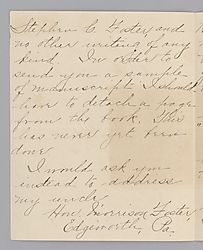 Stephen C. Foster, and
no other writing of any
kind. In order to
send you a sample
of manuscript I should
have to detach a page
from the book. This
has never yet been
done.
I would ask you
instead to address
my uncle,
Hon. Morrison Foster,
Edgeworth Pa.